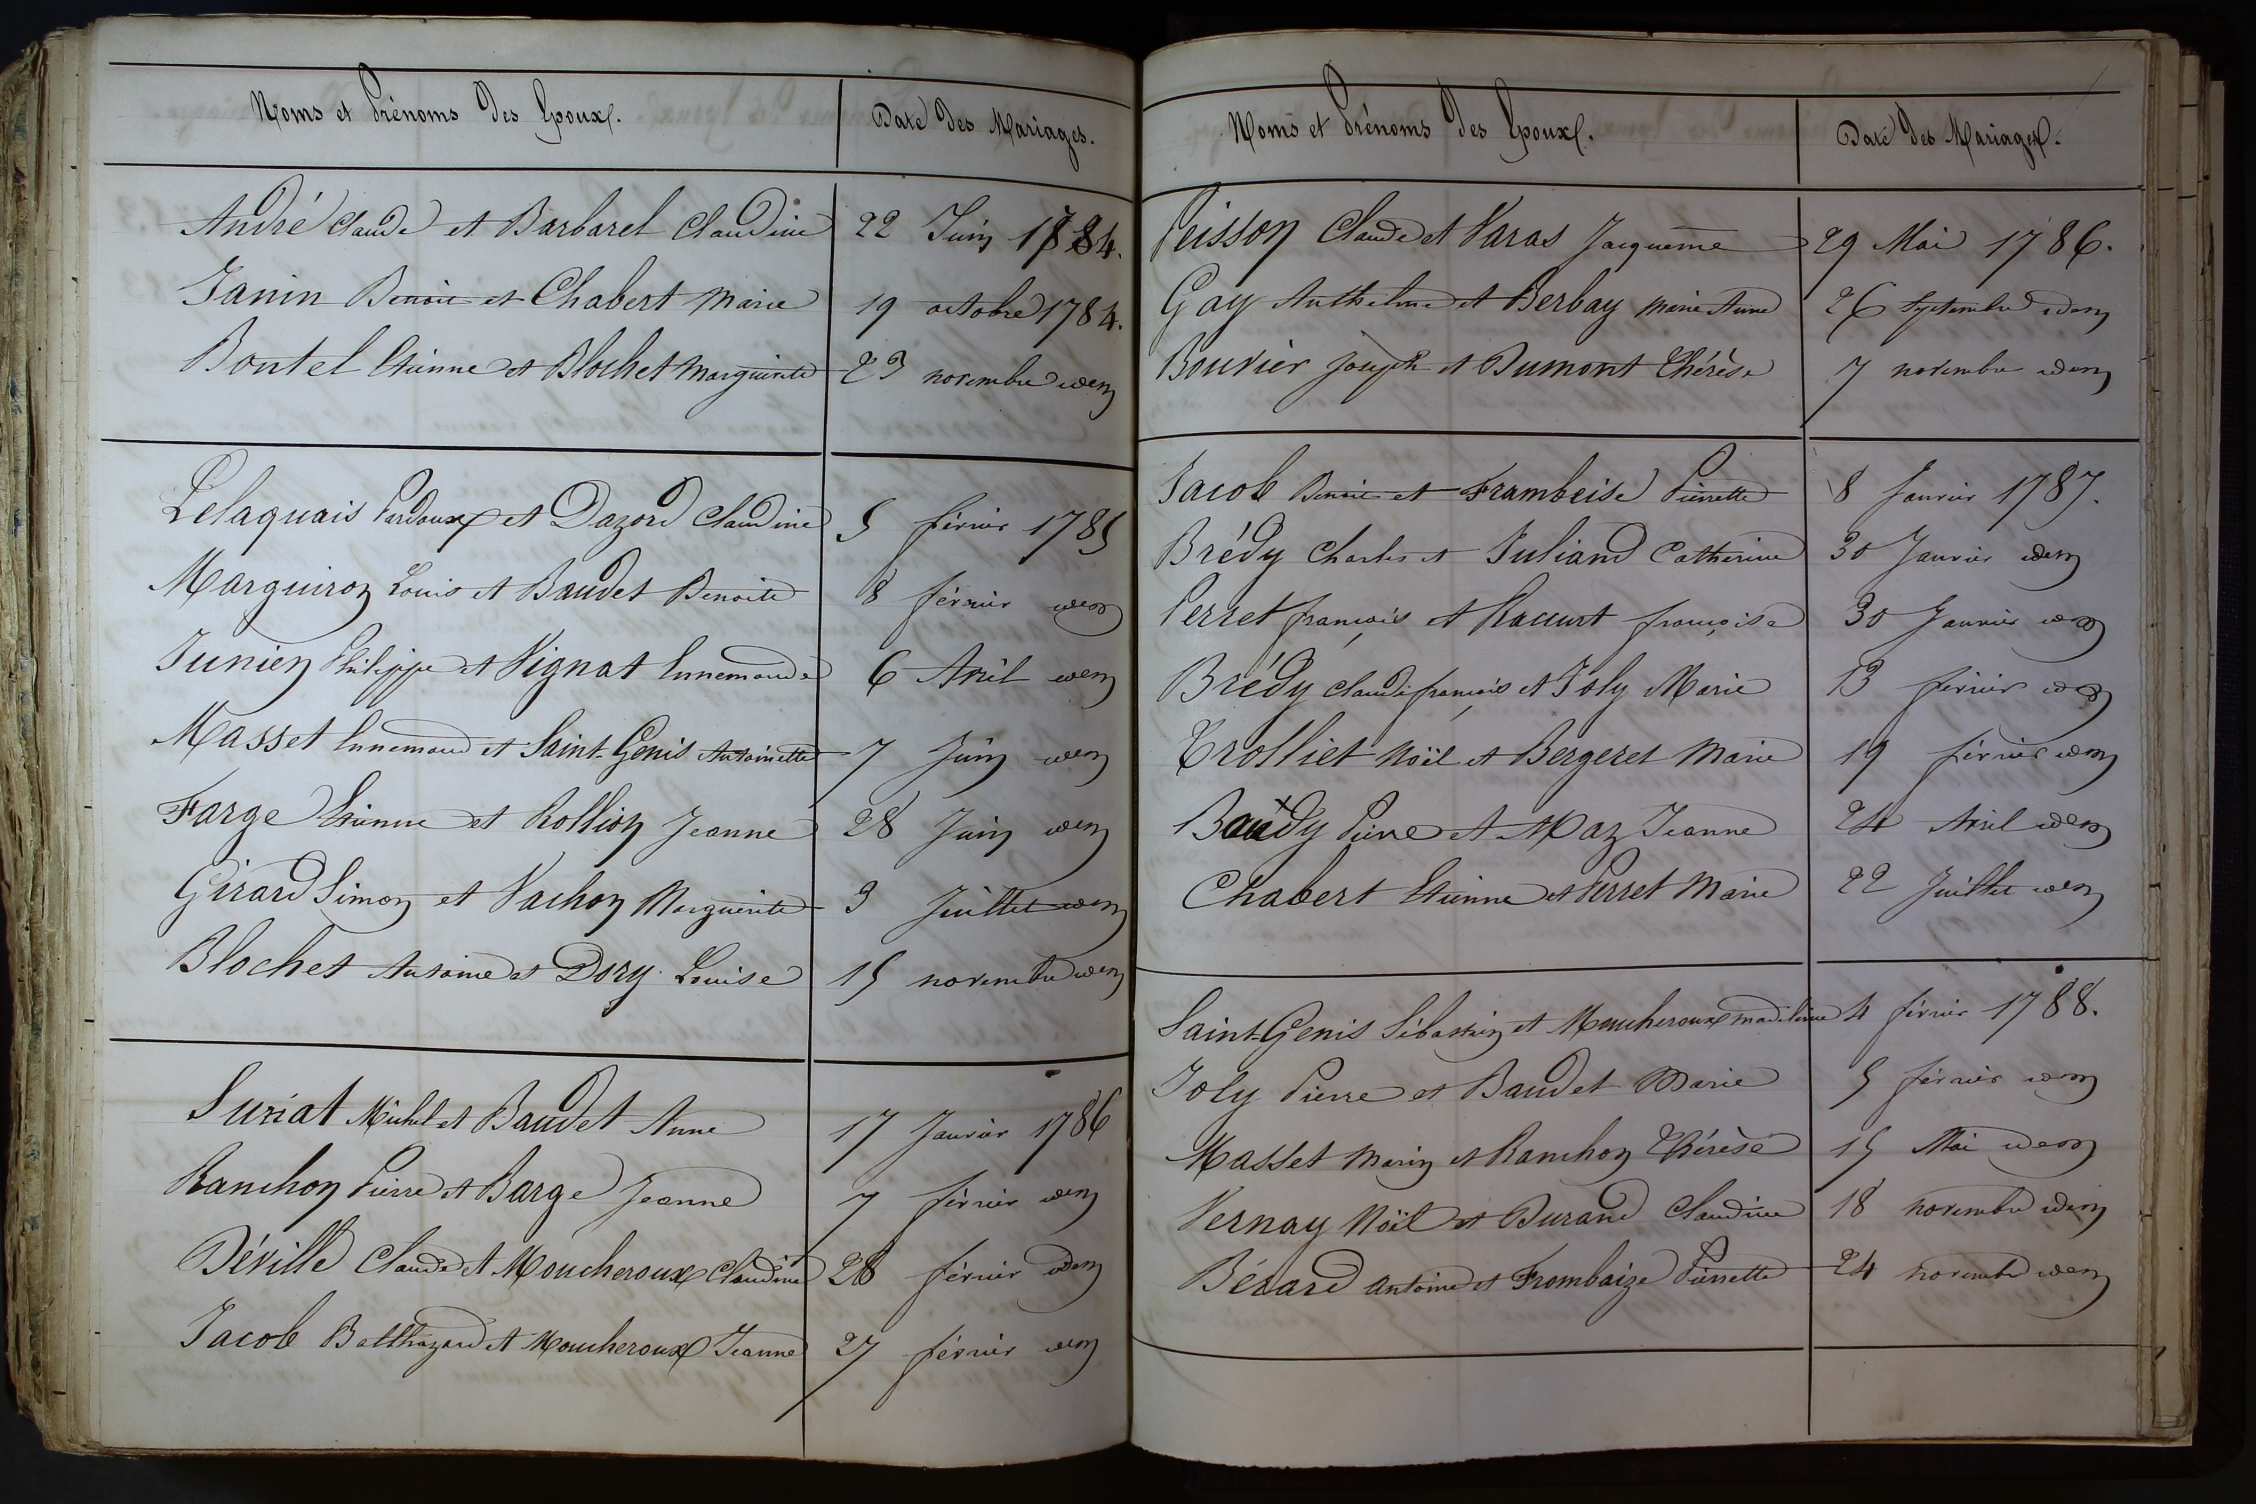 Noms et Prénoms des Epoux.
Date des Mariages.
André Claude et Barbaret Claudine 22 Juin 1784.
Janin Benoit et Chabert Marie 19 octobre 1784.
Boutel Etienne et Blochet Marguerite 23 novembre idem
Lelaquais Pardoux et Dazord Claudine 5 février 1785
Marguiron Louis et Baudet Benoite 8 février idem
Junien Philippe et Vignat Ennemonde 6 Avril idem
Masset Ennemond et Saint-Genis Antoinette 7 Juin idem
Farge Etienne et Rollion Jeanne 28 Juin idem
Girard Simon et Vachon Marguerite 3 Juillet idem
Blochet Antoine et Dory Louise 15 novembre idem
Suriat Michel et Baudet Anne 17 Janvier 1786
Ranchon Pierre et Barge Jeanne 7 février idem
Déville Claude et Moucheroux Claudine 28 février idem
Jacob Balthazard et Moucheroux Jeanne 27 février idem
Noms et Prénoms des Epoux.
Date des Mariages.
Peisson Claude et Varas Jacqueme 29 Mai 1786.
Gay Anthelme et Berbay Marie Anne 26 Septembre idem
Bouvier Joseph et Dumont Thérèse 7 novembre idem
Jacob Benoit et Frambeise Pierrette 8 Janvier 1787.
Brédy Charles et Juliand Catherine 30 Janvier idem
Perret françois et Racurt françoise 30 Janvier idem
Brédy Claude françois et Joly Marie 13 février idem
Trolliet Noël et Bergeret Marie 19 février idem
Baudy Pierre et Maz Jeanne 24 Avril idem
Chabert Etienne et Perret Marie 22 Juillet idem
Saint-Genis Sébastien et Moucheroux Madeleine 4 février 1788.
Joly Pierre et Baudet Marie 5 février idem
Masset Marin et Ranchon Thérèse 15 Mai idem
Vernay Noël et Durand Claudine 18 novembre idem
Bérard Antoine et Frombaize Pierrette 24 novembre idem